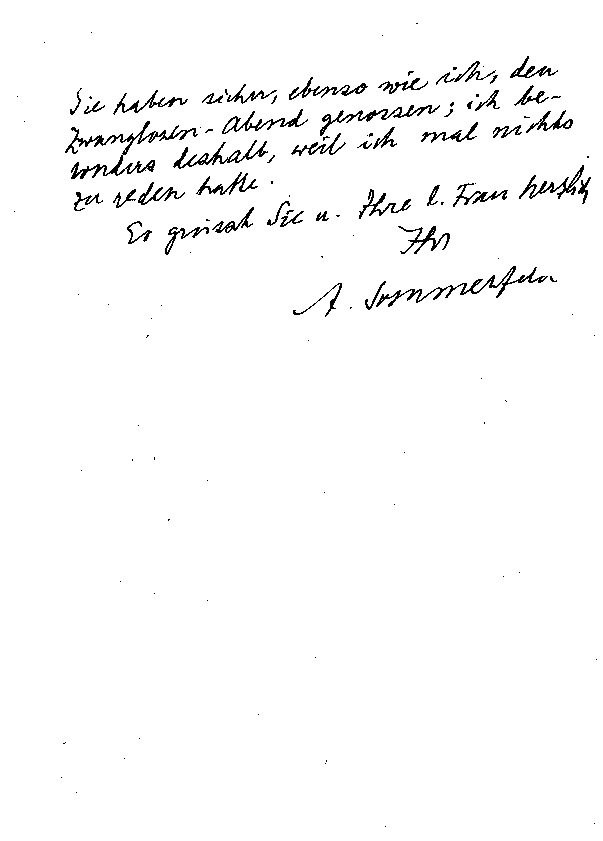 Sie haben sicher, ebenso wie ich, den
Zwanglosen-Abend genossen; ich be-
sonders deshalb, weil ich mal nichts
zu reden hatte.
Es grüsst Sie u. Ihre l. Frau herzlich
Ihr
A. Sommerfeld